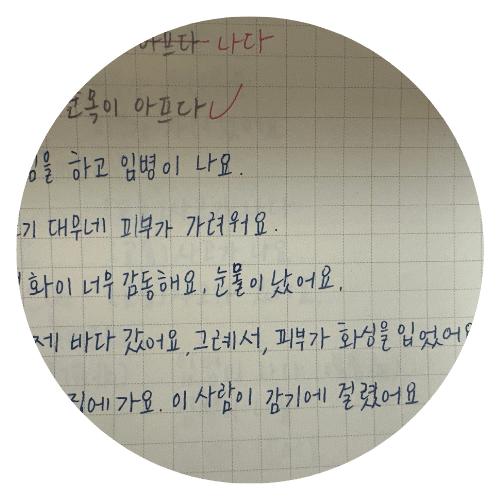 아프다 나다
손목이 아프다
하고 입병이 나요.
대무네 피부가 가려워요.
너무 감동해요. 눈물이 났어요.
바다 갔어요. 그레서, 피부가 화싱을 입었어요
가요. 이 사람이 감기에 걸렸어요